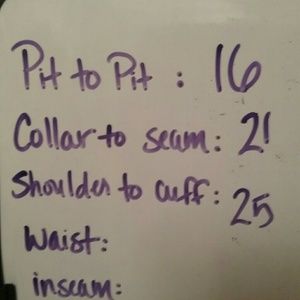 Pit to Pit : 16
Collar to seam: 21
Shoulder to cuff: 25
Waist:
inseam: